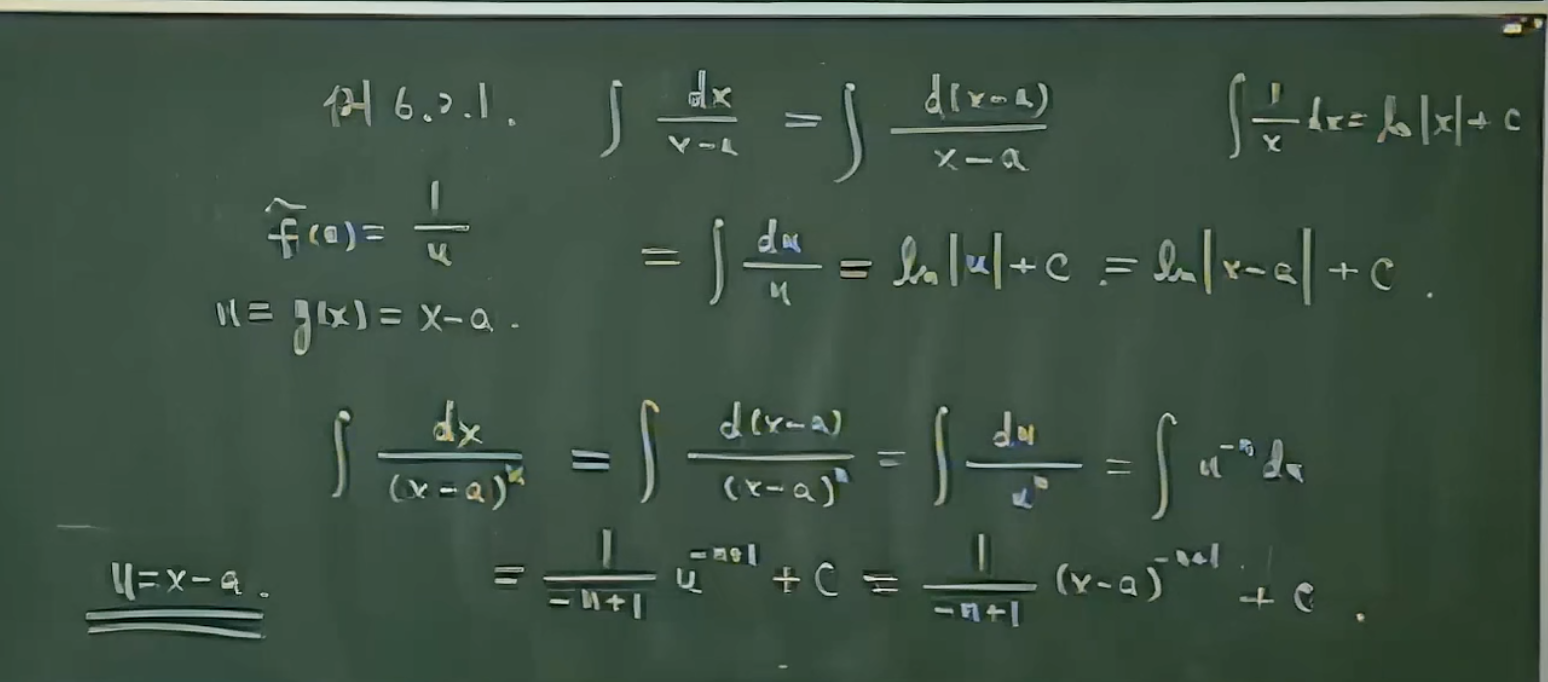 例 6.2.1. ∫ dx/(x-a) = ∫ d(x-a)/(x-a) ∫ 1/x dx = ln|x| + C
f̃(u) = 1/u = ∫ du/u = ln|u| + C = ln|x-a| + C.
u = g(x) = x-a.
∫ dx/(x-a)ⁿ = ∫ d(x-a)/(x-a)ⁿ = ∫ du/uⁿ = ∫ u⁻ⁿ du
u = x-a. = 1/(-n+1) u^(-n+1) + C = 1/(-n+1) (x-a)^(-n+1) + C.